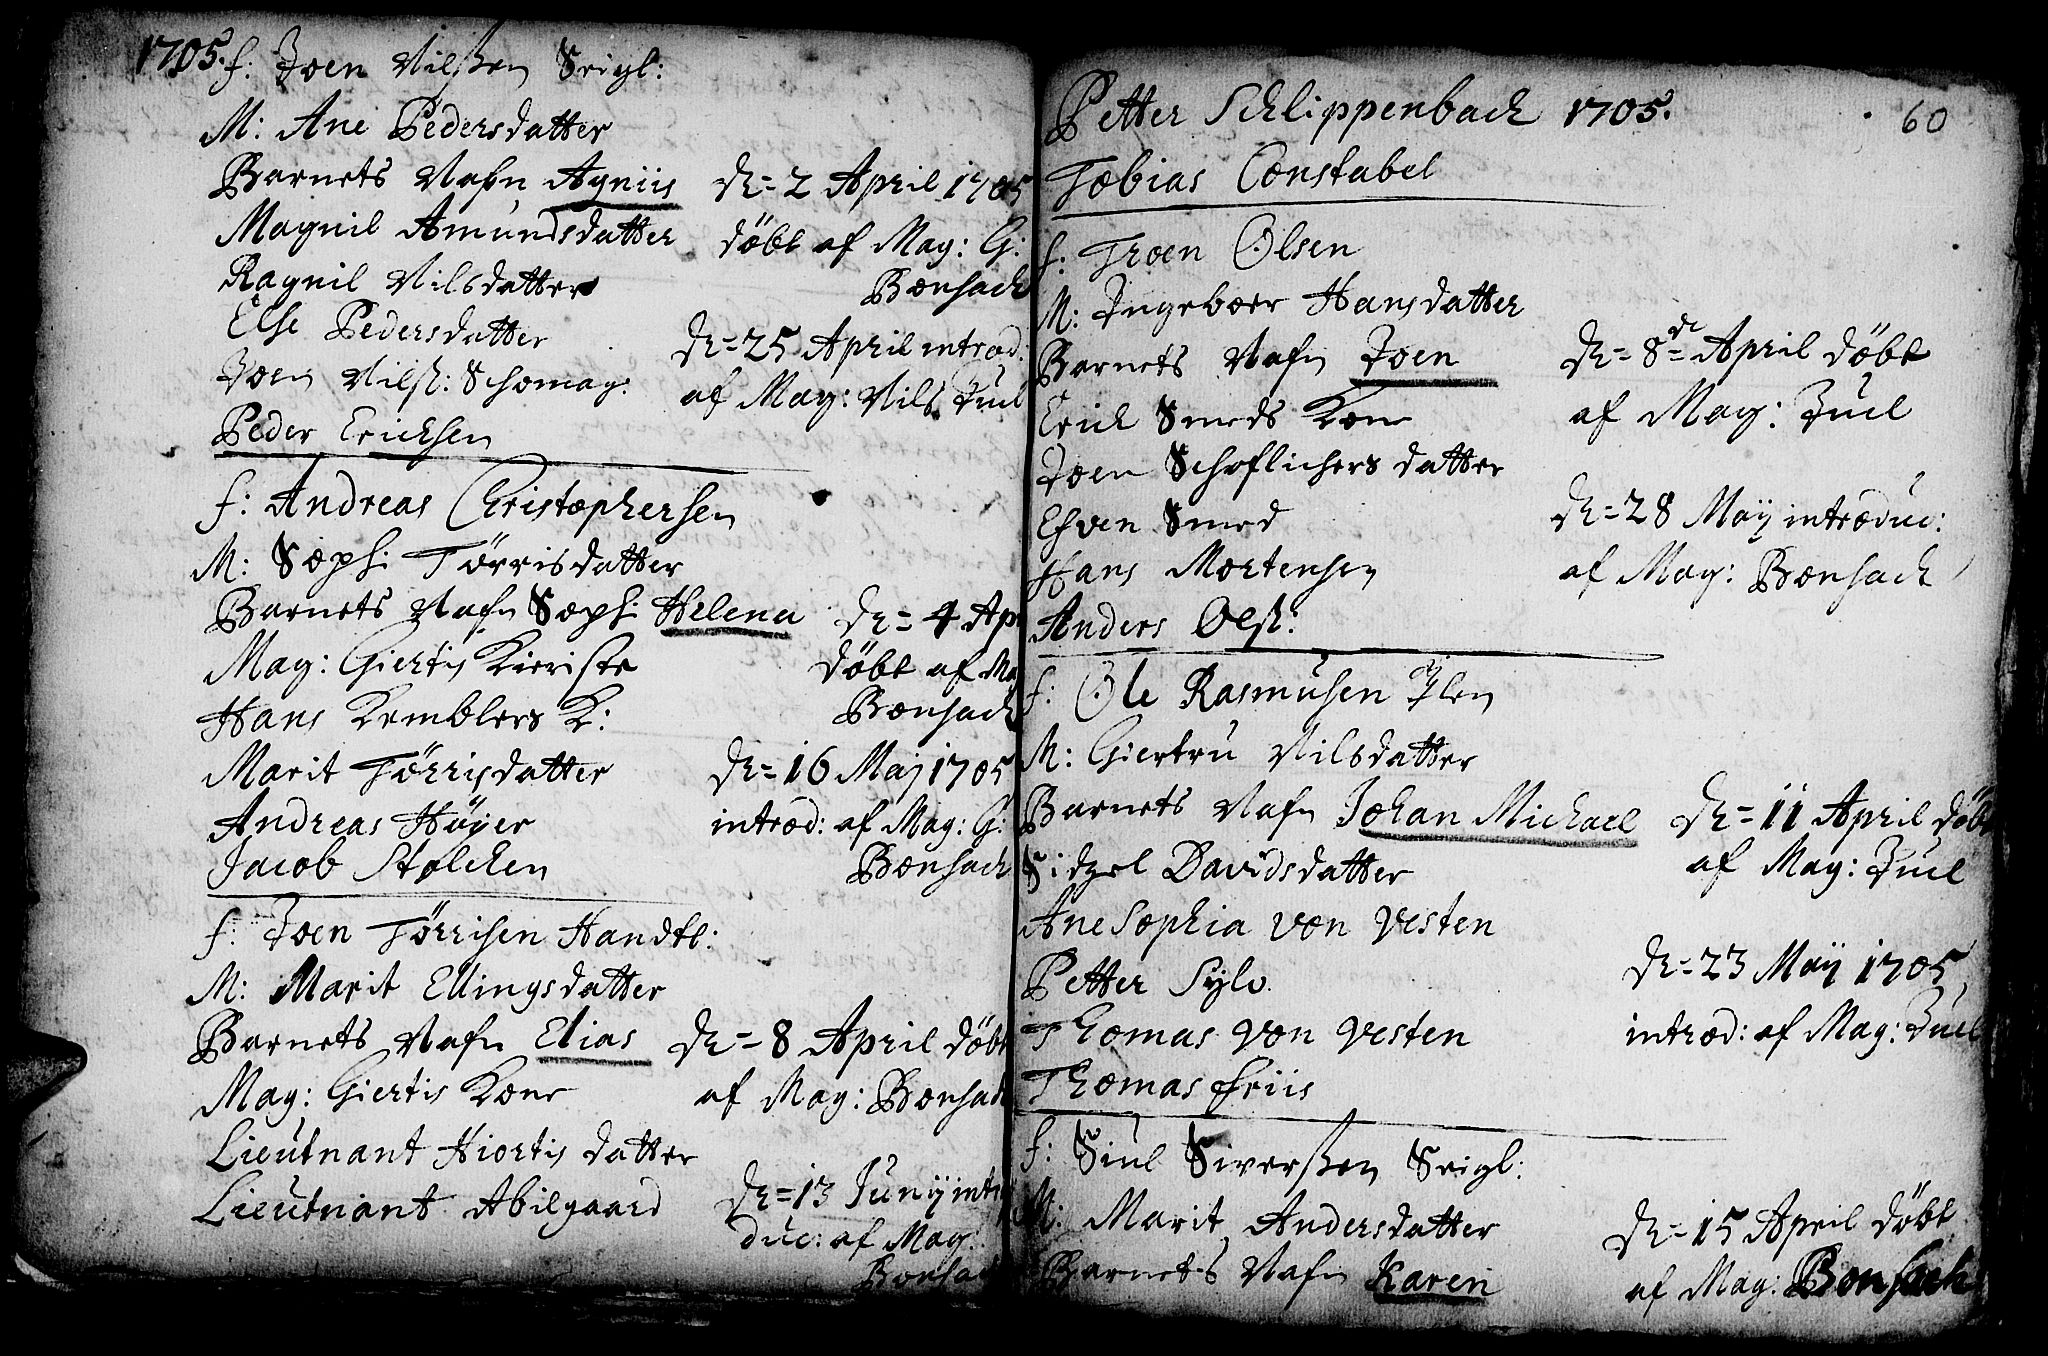 1705. f: Joen Nilssen Seigl:
M: Ane Pedersdatter
Barnets Nafn Agniis
Magnil Amundsdatter
Ragnil Nilsdatter
Else Pedersdatter
Joen Nilss: Schomag:
Peder Ericksen
dn = 2 April 1705
døbt af Mag: G:
Bonsach
dn = 25 April introd:
af Mag: Nils Juel
f: Andreas Christophersen
M: Soph: Tørrisdatter
Barnets Nafn Soph: Helena
Mag: Giertis Kieriste
Hans Kemblers K:
Marit Tørrisdatter
Andreas Høyer
Jacob Stølcken
dn = 4 Ap
døbt af Ma
Bonsach
dn = 16 Maj 1705
introd: af Mag: G:
Bonsach
f: Joen Tørrisen Handtl:
M: Marit Ellingsdatter
Barnets Nafn Elias
Mag: Giertis Kone
Lieutnant Hiortis datter
Lieutnant Abilgaard
dn = 8 April døbt
af Mag: Bonsach
dn = 13 Junij intro
duc: af Mag:
Bonsach
Petter Schlippenbach 1705.
60
Tobias Constabel
f: Troen Olsen
M: Ingeboer Hansdatter
Barnets Nafn Joen
Erich Smeds Kone
Joen Schoflichers datter
Esven Smed
Hans Mortensen
Anders Olss:
dn = 8de April døbt
af Mag: Juel
dn = 28 Maij introduc:
af Mag: Bonsach
f: Ole Rasmusen Ilen
M: Giertru Nilsdatter
Barnets Nafn Johan Michael
Sidzel Davidsdatter
Ane Sophia von Vesten
Petter Sylv.
Thomas von Vesten
Thomas Friis
dn = 11 April døbt
af Mag: Juel
dn = 23 Maij 1705
introd: af Mag: Juel
f: Siul Siverssen Seigl:
M: Marit Andersdatter
Barnets Nafn Karen
dn = 15 April døbt
af Mag: Bonsach